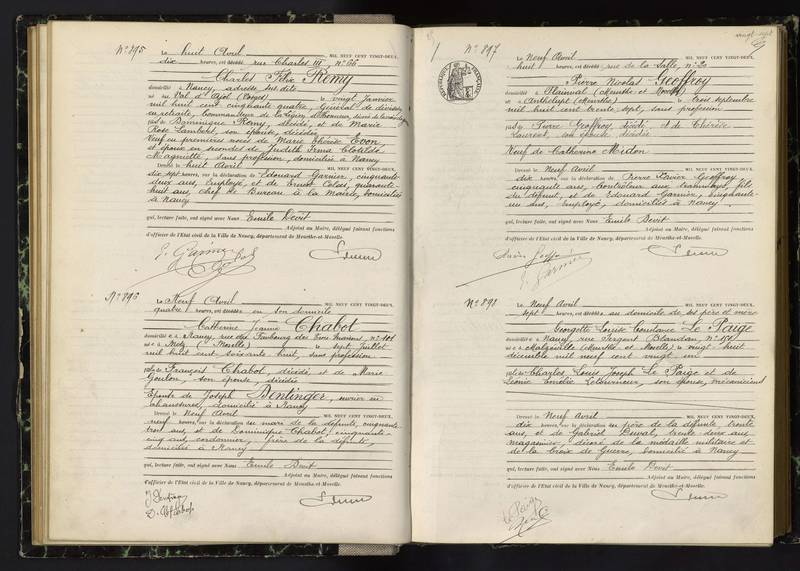 N° 895
Le huit Avril MIL NEUF CENT VINGT-DEUX,
dix heures, est décédé rue Charles III, n° 66
Charles Félix Remy
domicilié à Nancy, adresse sus dite
né au Val d'Ajol (Vosges) le vingt Janvier
mil huit cent cinquante quatre, Général de division
en retraite, Commandeur de la Légion d'honneur, décoré de
fils de Dominique Remy, décédé, et de Marie
Rose Lambert, son épouse, décédée
Veuf en premières noces de Marie Thérèse Evon,
et époux en secondes de Judith Irma Clotilde
Magnette, sans profession, domiciliée à Nancy
Dressé le huit Avril MIL NEUF CENT VINGT-DEUX,
dix sept heures, sur la déclaration de Edouard Garnier, cinquante-
deux ans, employé, et de Ernest Colas, quarante-
huit ans, chef de Bureau à la Mairie, domiciliés
à Nancy
qui, lecture faite, ont signé avec Nous Emile Devit
Adjoint au Maire, délégué faisant fonctions
d'officier de l'Etat civil de la Ville de Nancy, département de Meurthe-et-Moselle.
E. Garnier
N° 896
Le Neuf Avril MIL NEUF CENT VINGT-DEUX,
quatre heures, est décédée en son domicile
Catherine Jeanne Chabot
domiciliée à Nancy, rue du Faubourg des Trois Maisons, n° 101
née à Metz (Moselle) le sept Juillet
mil huit cent soixante huit, sans profession
fille de François Chabot, décédé, et de Marie
Goulon, son épouse, décédée
Epouse de Joseph Dentinger, ouvrier en
chaussures, domicilié à Nancy
Dressé le Neuf Avril MIL NEUF CENT VINGT-DEUX,
neuf heures, sur la déclaration du mari de la défunte, cinquante
trois ans, et de Dominique Chabot, cinquante-
cinq ans, cordonnier, frère de la défunte,
domiciliés à Nancy
qui, lecture faite, ont signé avec Nous Emile Devit
Adjoint au Maire, délégué faisant fonctions
d'officier de l'Etat civil de la Ville de Nancy, département de Meurthe-et-Moselle.
J. Dentinger
D. Chabot
vingt-sept
N° 897
Le Neuf Avril MIL NEUF CENT VINGT-DEUX,
huit heures, est décédé rue de la Salle, n° 20
Pierre Nicolas Geoffroy
domicilié à Blainval (Meurthe et Moselle)
né à Anthelupt (Meurthe) le trois septembre
mil huit cent trente sept, sans profession
fils de Pierre Geoffroy, décédé et de Thérèse
Laurent, son épouse, décédée
Veuf de Catherine Midon
Dressé le Neuf Avril MIL NEUF CENT VINGT-DEUX,
dix heures, sur la déclaration de Pierre Xavier Geoffroy,
cinquante ans, contrôleur aux tramways, fils
du défunt, et de Edouard Garnier, cinquante-
un ans, employé, domiciliés à Nancy
qui, lecture faite, ont signé avec Nous Emile Devit
Adjoint au Maire, délégué faisant fonctions
d'officier de l'Etat civil de la Ville de Nancy, département de Meurthe-et-Moselle.
E. Garnier
N° 898
Le Neuf Avril MIL NEUF CENT VINGT-DEUX,
sept heures, est décédée au domicile de ses père et mère
Georgette Louise Constance Le Paige
domiciliée à Nancy, rue Sergent Blandan, n°
née à (Meurthe et Moselle) le vingt huit
décembre mil neuf cent vingt un
fille de Charles Louis Joseph Le Paige et de
Léonie Emélie Letourneur, son épouse, mécaniciens
Dressé le Neuf Avril MIL NEUF CENT VINGT-DEUX,
dix heures, sur la déclaration du père de la défunte, trente
ans, et de Gabriel Duval, trente deux ans,
magasinier, décoré de la médaille militaire et
de la Croix de Guerre, domiciliés à Nancy
qui, lecture faite, ont signé avec Nous Emile Devit
Adjoint au Maire, délégué faisant fonctions
d'officier de l'Etat civil de la Ville de Nancy, département de Meurthe-et-Moselle.
Le Paige